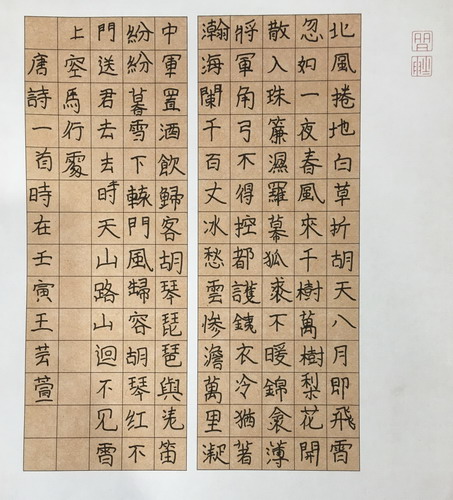 北風捲地白草折胡天八月即飛雪
忽如一夜春風來千樹萬樹梨花開
散入珠簾濕羅幕狐裘不暖錦衾薄
將軍角弓不得控都護鐵衣冷猶著
瀚海闌千百丈冰愁雲慘澹萬里凝
中軍置酒飲歸客胡琴琵琶與羌笛
紛紛暮雪下轅門風歸容胡琴红不
門送君去去時天山路山迴不见雪
上空馬行處
唐詩一首時在壬寅王芸萱